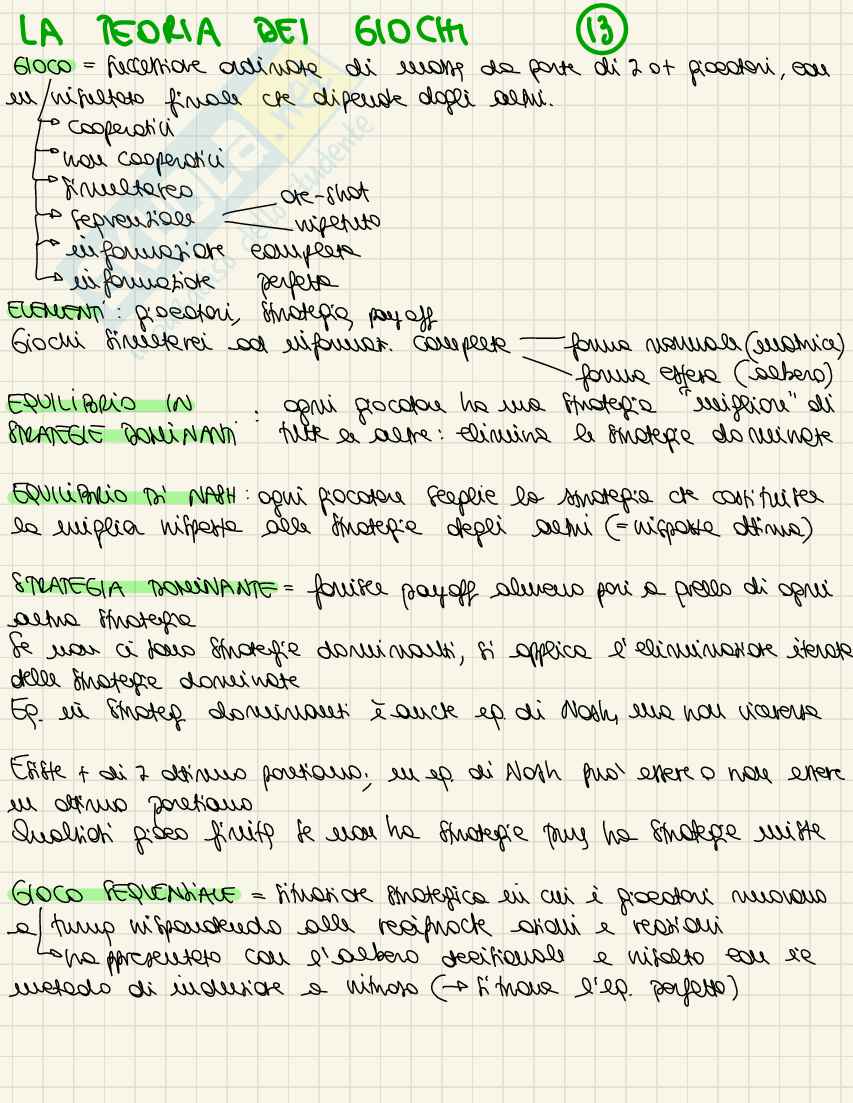 LA TEORIA DEI GIOCHI 13
GIOCO = successione ordinata di mosse da parte di 2 o + giocatori, con
un risultato finale che dipende dagli altri.
→ cooperativi
→ non cooperativi
→ simultaneo
→ sequenziale one-shot
ripetuto
→ informazione completa
→ informazione perfetta
ELEMENTI: giocatori, strategie, pay off
Giochi simultanei ad informaz. completa forma normale (matrice)
forma estesa (albero)
EQUILIBRIO IN : ogni giocatore ha una strategia "migliore" di
STRATEGIE DOMINANTI tutte le altre: elimina le strategie dominate
EQUILIBRIO DI NASH: ogni giocatore sceglie la strategia che costituisce
la miglior risposta alle strategie degli altri (= risposta ottima)
STRATEGIA DOMINANTE = fornisce payoff almeno pari a quello di ogni
altra strategia
Se non ci sono strategie dominanti, si applica l'eliminazione iterata
delle strategie dominate
Eq. in strateg dominanti è anche eq. di Nash, ma non viceversa
Esiste + di 1 ottimo paretiano; un eq. di Nash può essere o non essere
un ottimo paretiano
Qualsiasi gioco finito se non ha strategie pure ha strategie miste
GIOCO SEQUENZIALE = situazione strategica in cui i giocatori muovono
a turno rispondendo alle reciproche azioni e reazioni
→ rappresentato con l'albero decisionale e risolto con il
metodo di induzione a ritroso (→ si trova l'eq. perfetto)